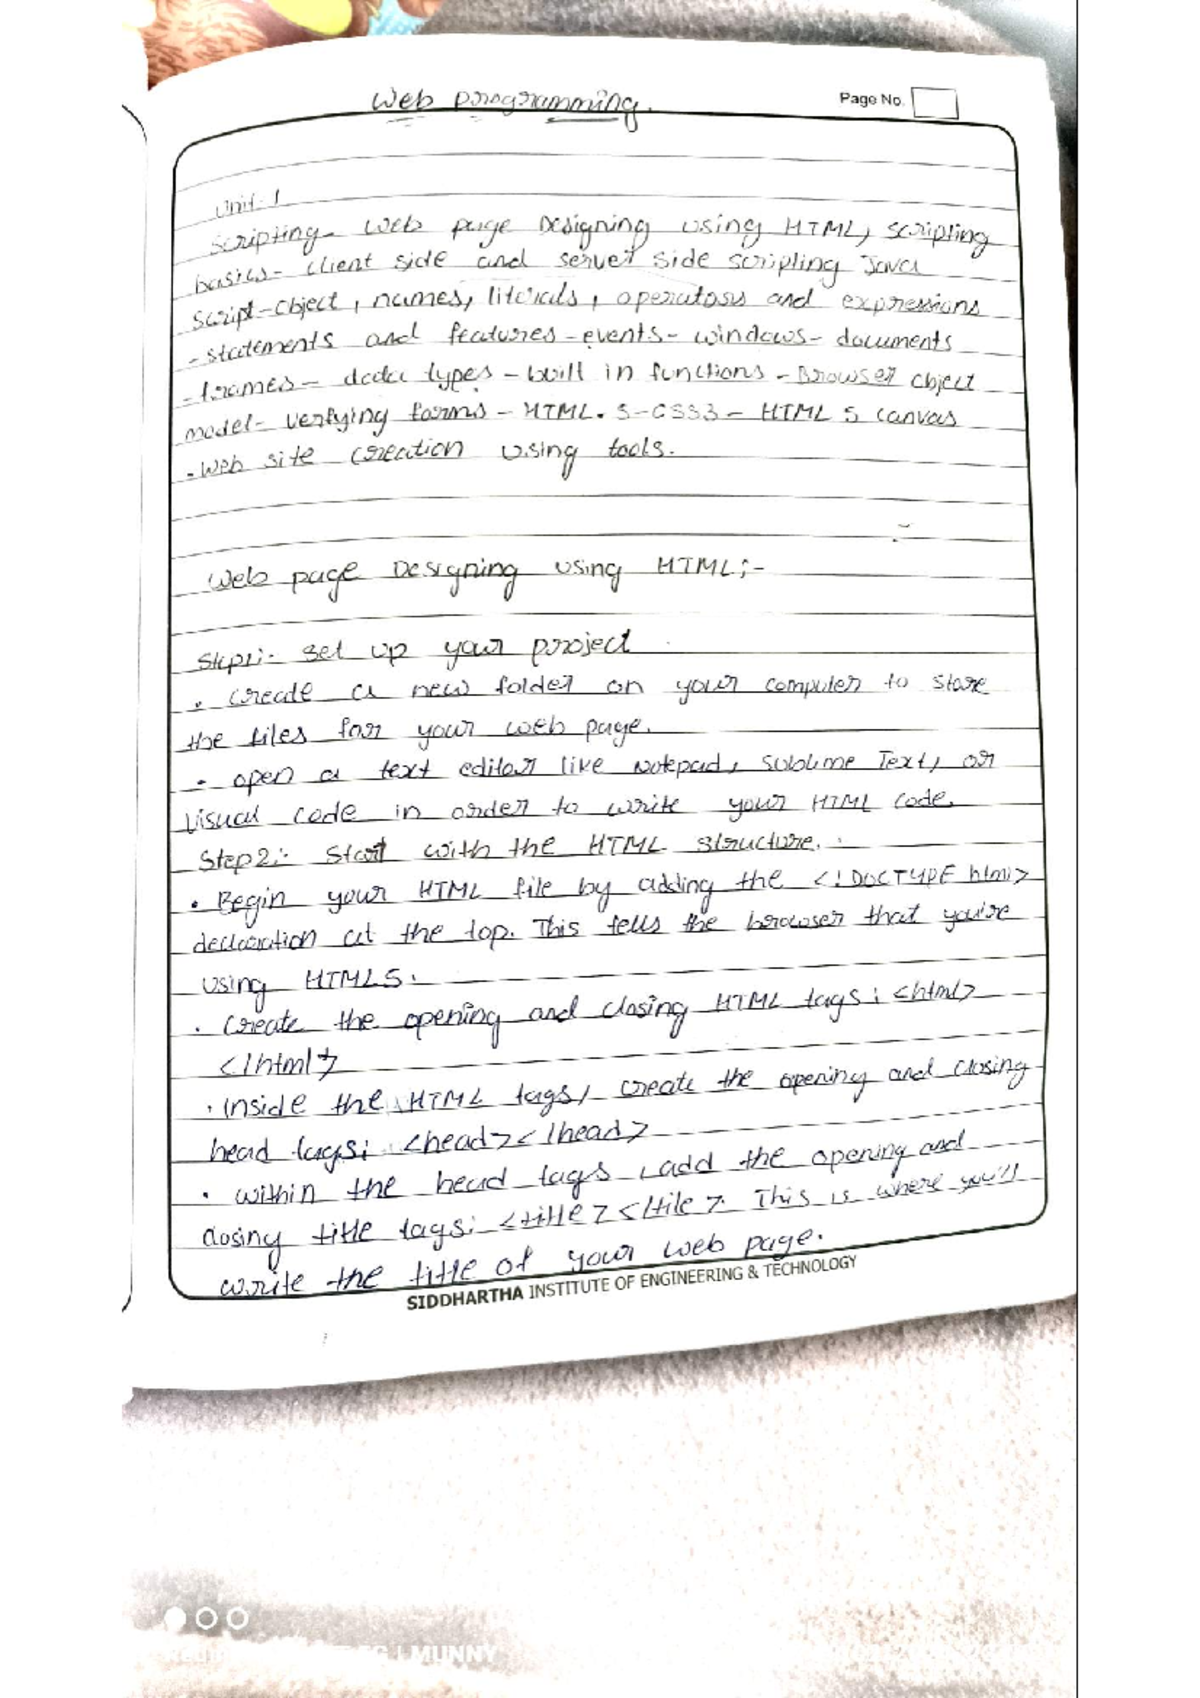 Web programming.
Page No.
Unit-1
Scripting- Web page Designing using HTML, Scripting
basics- Client side and server side scripting Java
script-Object, names, literals, operators and expressions
-statements and features-events-windows-documents
-frames-data types-built in functions-Browser object
model-Verfying forms-HTML.5-CSS3-HTML 5 canvas
-Web site creation using tools.
Web page Designing using HTML;-
Step1:- Set up your project
• Create a new folder on your computer to store
the files for your web page.
• open a text editor like Notepad, Sublime Text, or
Visual code in order to write your HTML code.
Step2:- Start with the HTML structure.
• Begin your HTML file by adding the <!DOCTYPE html>
declaration at the top. This tells the browser that you're
using HTML5.
• Create the opening and closing HTML tags: <html>
</html>
• Inside the HTML tags, create the opening and closing
head tags: <head></head>
• within the head tags, add the opening and
closing title tags: <title></tile>. This is where you'll
write the title of your web page.
SIDDHARTHA INSTITUTE OF ENGINEERING & TECHNOLOGY
MUNNY